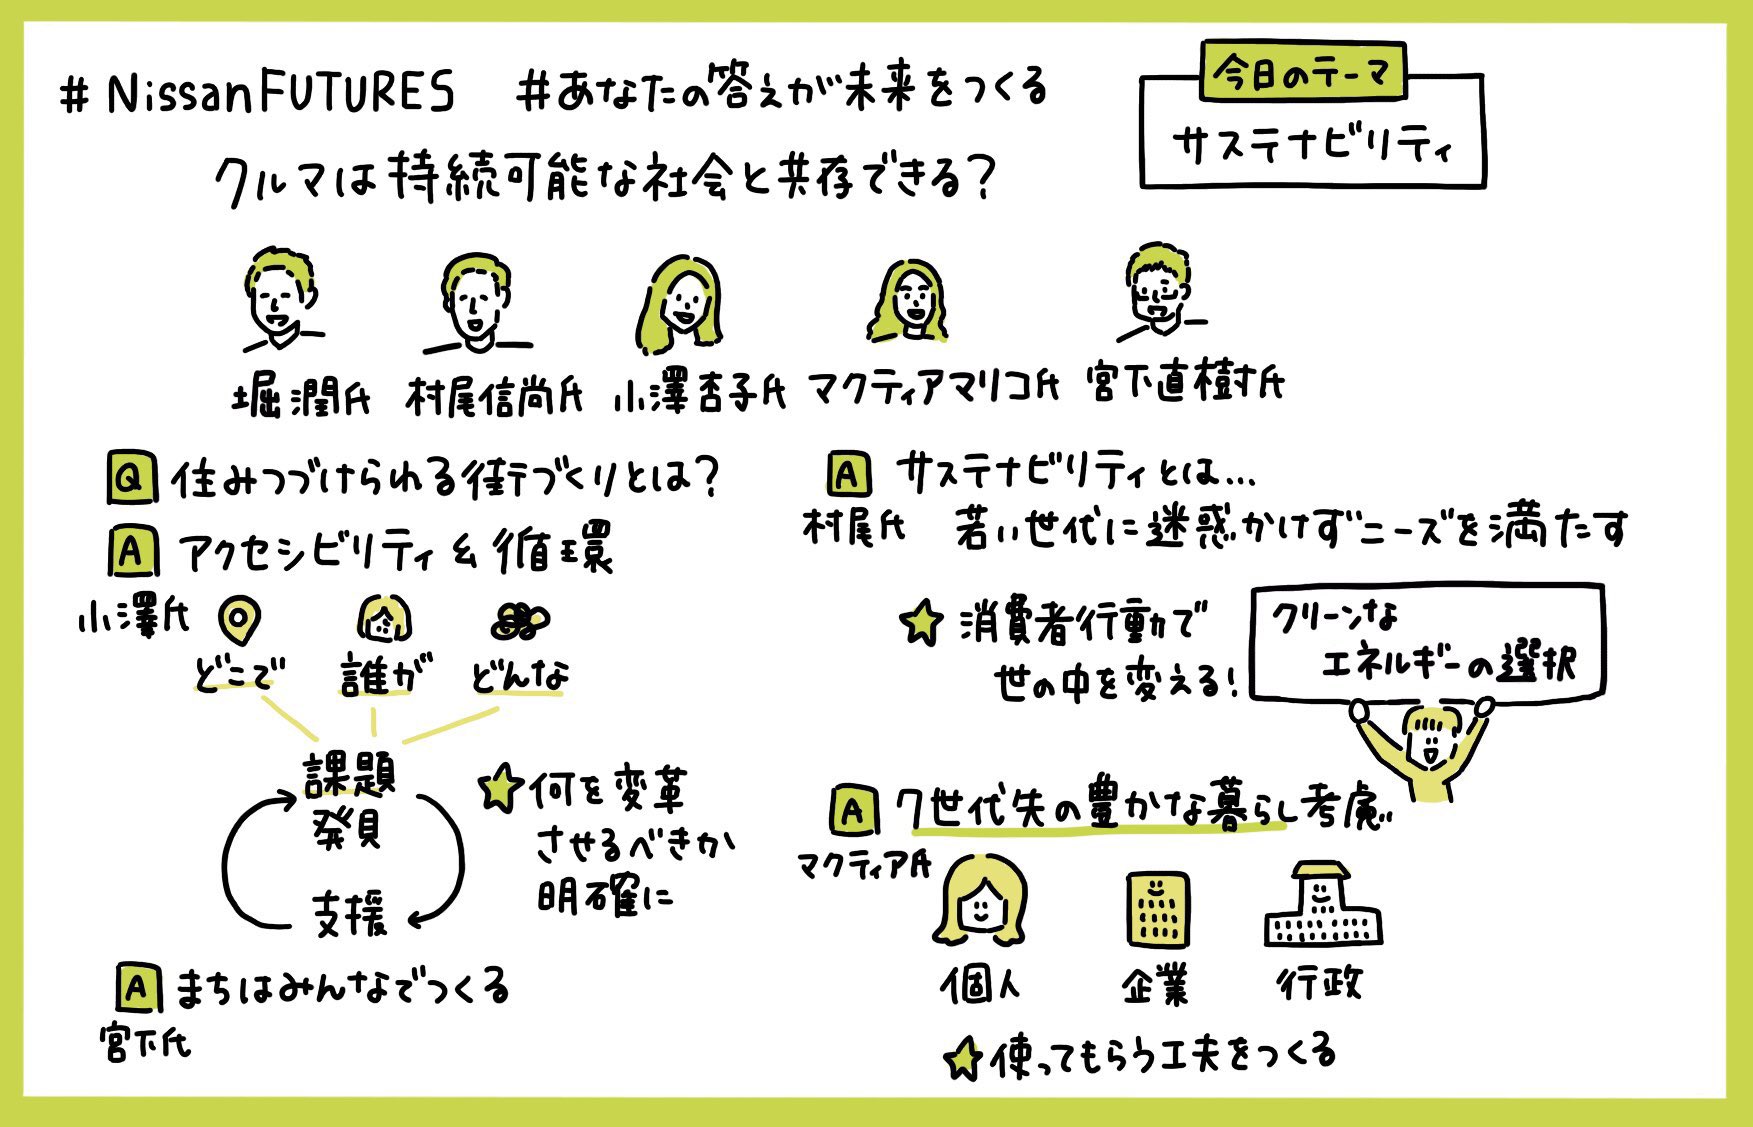 #NissanFUTURES #あなたの答えが未来をつくる
今日のテーマ
サステナビリティ
クルマは持続可能な社会と共存できる?
堀潤氏 村尾信尚氏 小澤杏子氏 マクティアマリコ氏 宮下直樹氏
Q 住みつづけられる街づくりとは?
A アクセシビリティ & 循環
小澤氏
どこで 誰が どんな
課題
発見
支援
何を変革
させるべきか
明確に
A まちはみんなでつくる
宮下氏
A サステナビリティとは...
村尾氏 若い世代に迷惑かけずニーズを満たす
消費者行動で
世の中を変える!
クリーンな
エネルギーの選択
A 7世代先の豊かな暮らし考慮
マクティア氏
個人 企業 行政
使ってもらう工夫をつくる